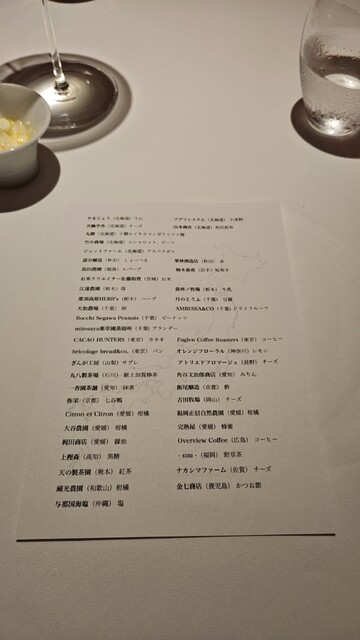 やまじょう（北海道）うに　アグリシステム（北海道）小麦粉
共働学舎（北海道）チーズ
丸勝（北海道）十勝ロイヤルマンガリッツァ豚
竹中農場（北海道）
ジェットファーム（北海道）アスパラガス
諸井醸造（秋田）しょっつる　栗林酒造店（秋田）
鳥田農園（福島）ハーブ　柿木畜産（岩手）短角牛
お米クリエイター佐藤裕貴（宮城）お米
江連農園（栃木）苺　森林ノ牧場（栃木）牛乳
那須高原HERB's（栃木）ハーブ　月のとうふ（千葉）豆腐
大松農場（千葉）卵　AMBESSA&CO（千葉）ドライフルーツ
Bocchi Segawa Peanuts（千葉）ピーナッツ
mitosaya薬草園蒸留所（千葉）ブランデー
CACAO HUNTERS（東京）カカオ　Fuglen Coffee Roasters（東京）コーヒー
bricolage bread&co.（東京）パン　オレンジフローラル（神奈川）レモン
ぎんが工房（山梨）サブレ　アトリエドフロマージュ（長野）チーズ
丸八製茶場（石川）献上加賀棒茶　角谷文治郎商店（愛知）みりん
一香園茶舗（愛知）抹茶　飯尾醸造（京都）酢
弥栄（京都）七谷鴨　吉田牧場（岡山）チーズ
Citron et Citron（愛媛）柑橘　福岡正信自然農園（愛媛）柑橘
大谷農園（愛媛）柑橘　完熟屋（愛媛）蜂蜜
梶田商店（愛媛）醤油　Overview Coffee（広島）コーヒー
上樫森（高知）黒糖　（福岡）野草茶
天の製茶園（熊本）紅茶　ナカシマファーム（佐賀）チーズ
蔵光農園（和歌山）柑橘　金七商店（鹿児島）かつお節
与那国海塩（沖縄）塩